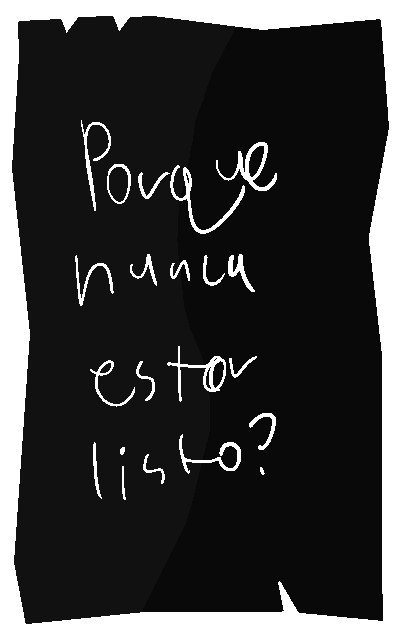 Porque
nunca
estor
listo?